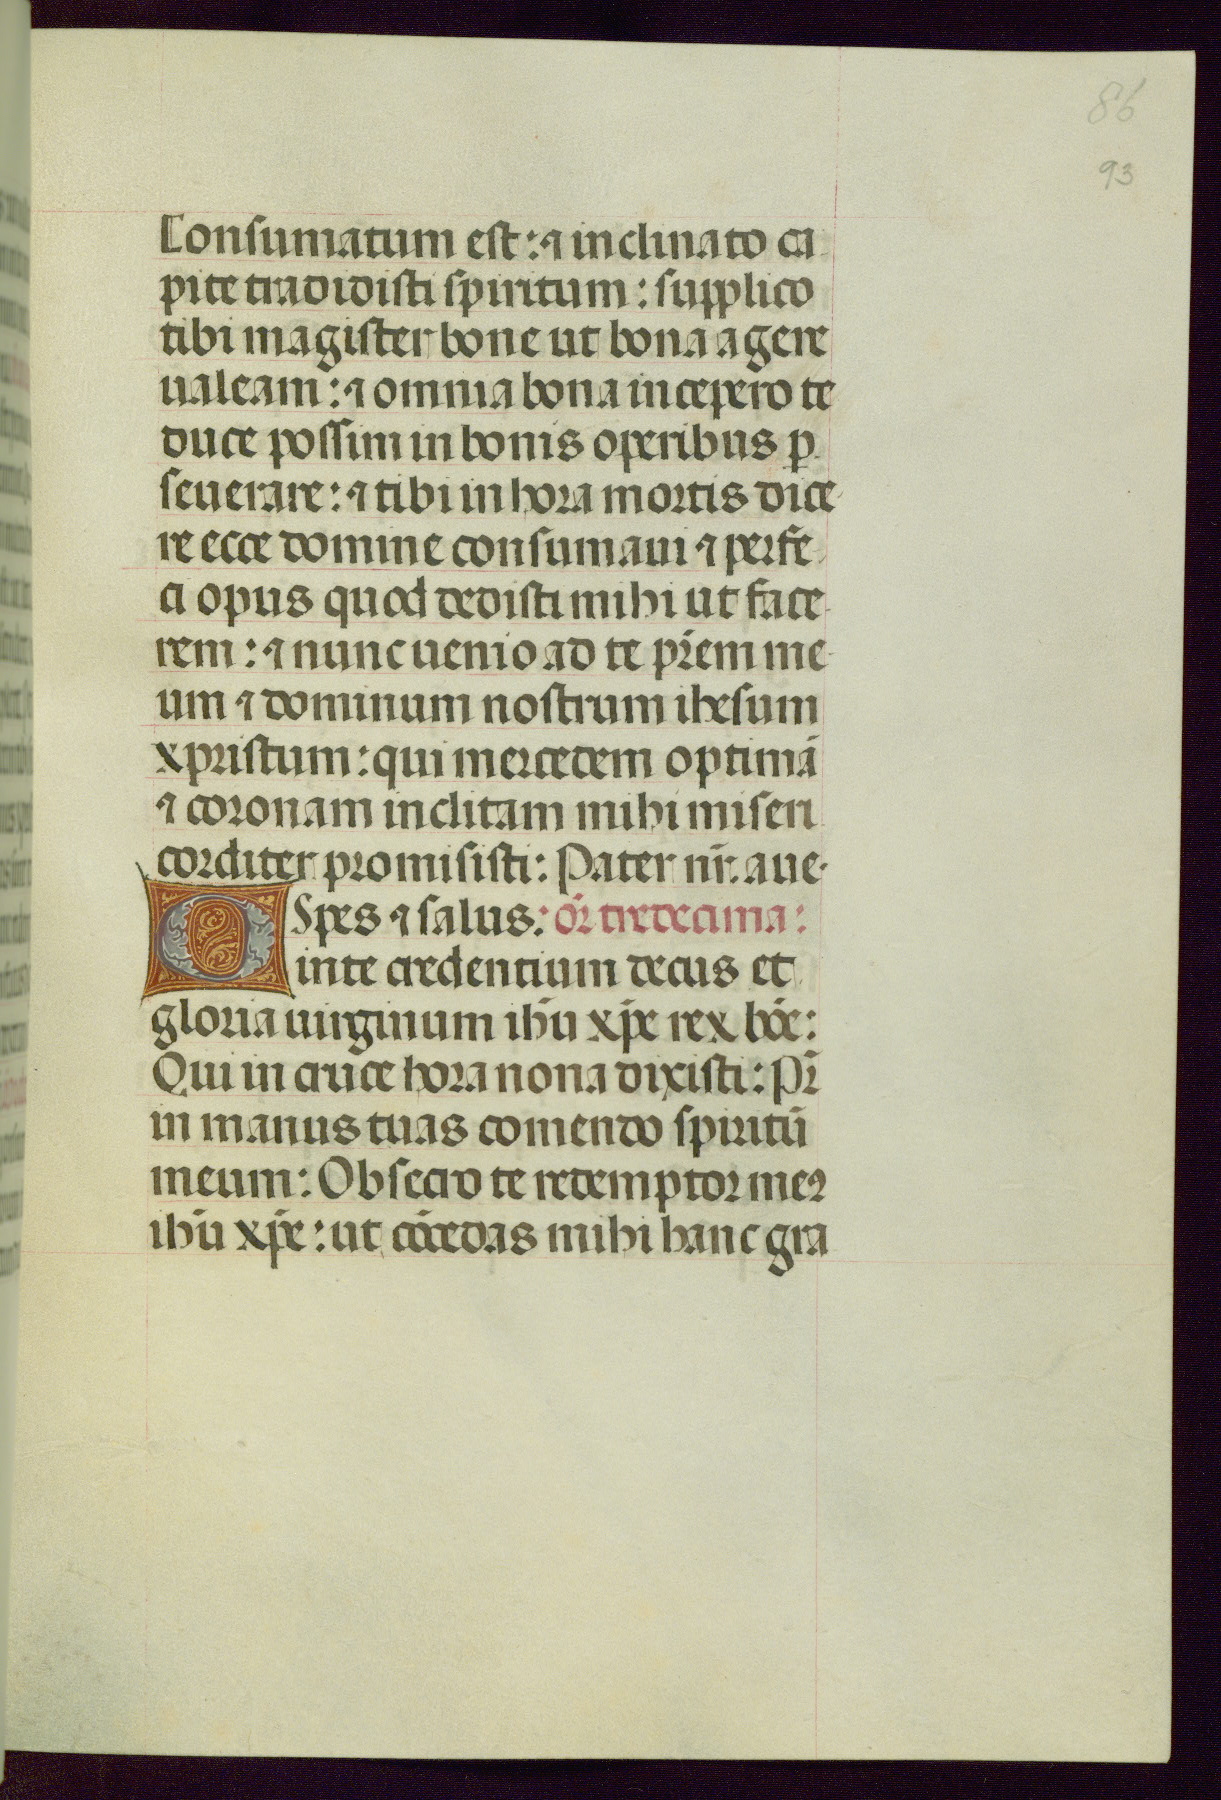 86
93
Consumatum est: ⁊ inclinato ca
pite tradidisti spiritum: supplico
tibi magister bone ut bona agere
ualeam: ⁊ omnia bona incepero te
duce possim in bonis operibus ꝑ
seuerare: ⁊ tibi in hora mortis dice
re ecce domine consumaui ⁊ perfe
ci opus quod dedisti mihi ut face
rem: ⁊ nunc uenio ad te pr̃em me
um ⁊ dominum nostrum ihesum
xpristum: qui mercedem optimā
⁊ coronam inclitam mihi miseri
corditer promisisti: Pater nr̃. aue.
O Spes ⁊ salus: or̃ tredecima:
inte credentium decus et
gloria uirginum ihū xp̃e rex bōe:
Qui in cruce hora nona dixisti: Pr̃
in manus tuas comendo spiritū
meum: Obsecro te redemptor meꝛ
ihū xp̃e: ut cōcedas mihi hanc gra